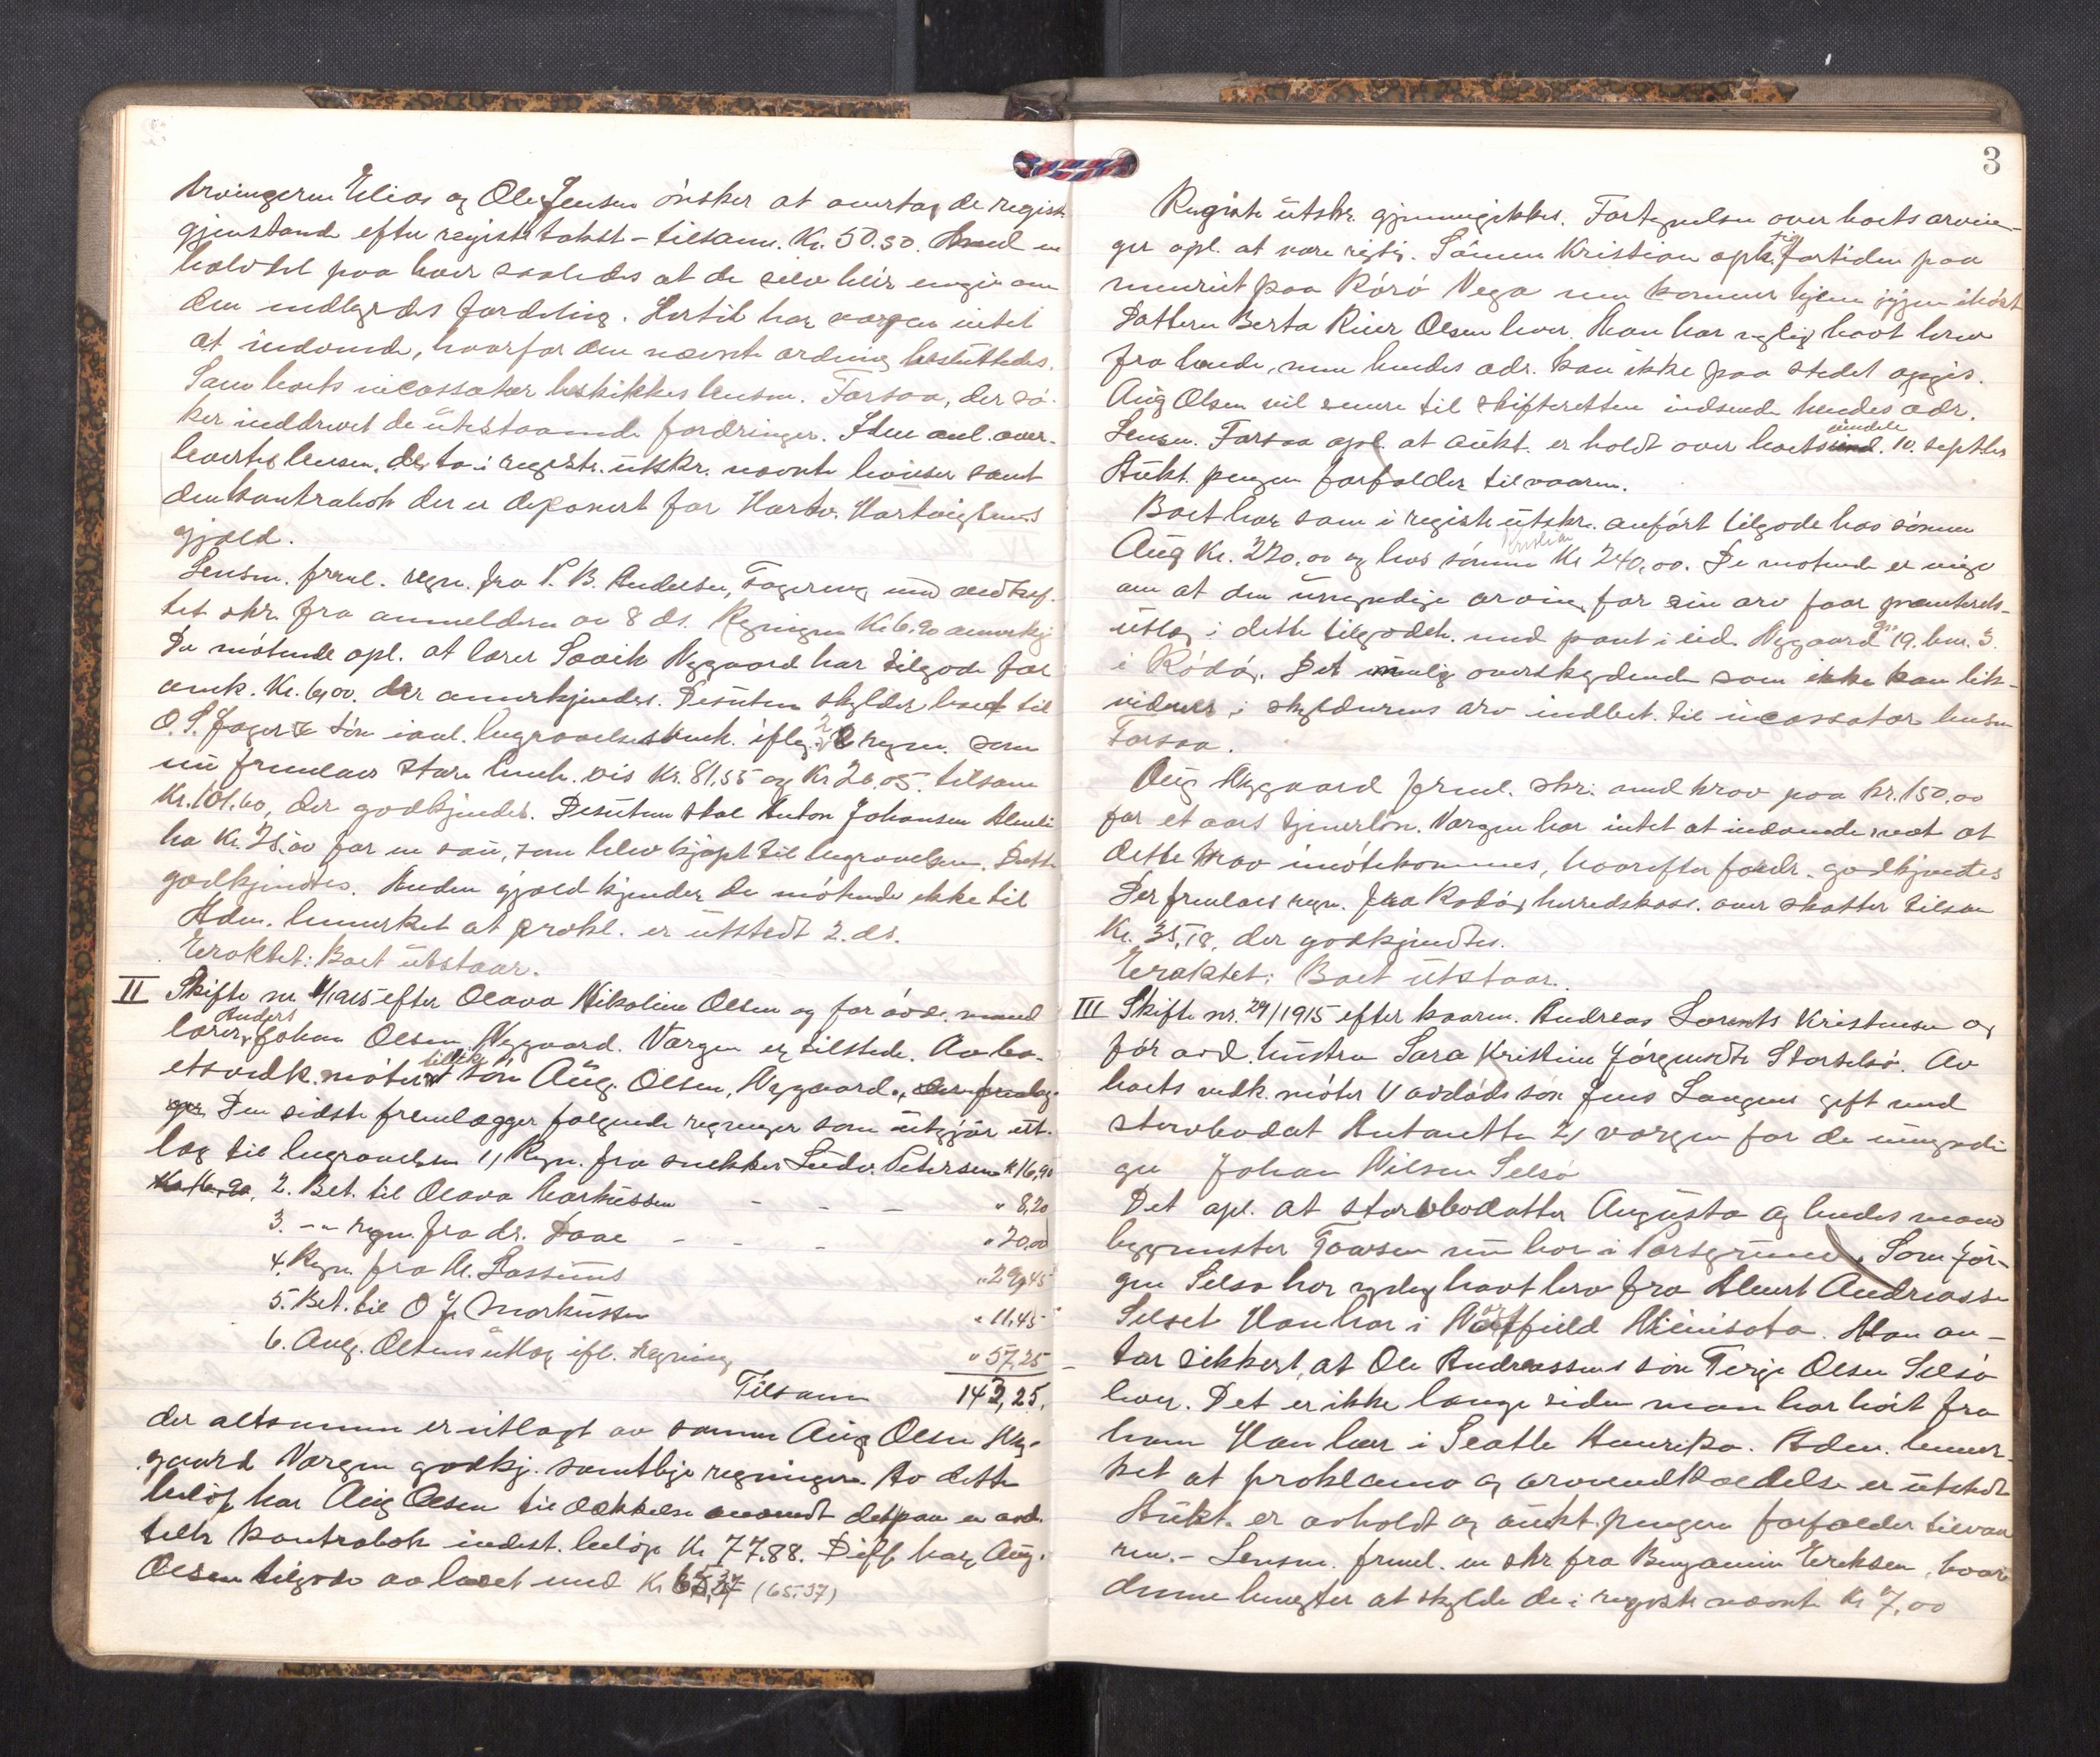 Arvingerne Elias og Ole Jensen ønsker at overta de registr.
gjenstande efter registr. takst - tilsam. Kr. 50.50. Med en
halvdel paa hver saaledes at de selv blir enige om
den indbyrdes fordeling. Hertil har vergen intet
at indvende, hvorfor den nævnte ordning besluttedes.
Som boets incassator beskikkes lensm. Forsaa, der sø-
ker inddrevet de utestaaende fordringer. I den anl. over-
levertes lensm. de to i registr. utskr. nævnte beviser samt
den kontrabok der er deponert for Hartv. Hartvigsens
gjæld.
Lensm. freml. regn. fra P. B. Andersen, Fagereng med vedhef-
tet skr. fra anmelderen av 8 ds. Regningen Kr. 6.90 anerkj.
De møtende opl. at lærer Søvik Nygaard har tilgode for
Kr. 6,00. der anerkjendes. Desuten skylder boet til
O. S. Fagerli søn begravelses iflg. 2 regn. som
nu fremlaes Kr. 81,55 og Kr 20,05. tilsam
Kr. 101.60, der godkjendes. Desuten skal Anton Johansen
ha Kr. 28.00 for en sau, som blev kjøpt til begravelsen. Dette
godkjendtes. Anden gjæld kjender de møtende ikke til
Adm. bemerket at prokl. er utstedt 2. ds.
Eraktet: Boet utstaar.
II Skifte nr 11/1915 efter Olava Nikoline Olsen og før avd. mand
lærer Anders Johan Olsen Nygaard. Vergen er tilstede. Av bo-
ets vedk. møter tillike søn Aug. Olsen, Nygaard., der fremlæg-
ger Den sidste fremlægger følgende regninger som utgjør ut-
læg til begravelsen 1, Regn. fra snekker Ludv. Petersen K 16,90
Kr. 16,90. 2. Bet. til Olava Markussen - - - " 8,20
3. -"- regn. fra dr. Daae - - - " 20,00
4. Regn. fra A. Lassens " 29,45
5. Bet. til O J. Markussen " 11,45
6. Aug. Olsens utlæg ifl. regning " 57,25
Tilsam 143,25.
der altsammen er utlagt av sønnen Aug Olsen Ny-
gaard Vergen godkj. samtlige regninger. Av dette
beløp har Aug Olsen til dækkelse anvendt det paa en avd.
tilh. kontrabok indest. beløp Kr 77.88. Diff. har Aug.
Olsen tilgode av boet med Kr 65,37 (65.37)
3
Registr. utskr. gjennemgikkes. Fortegnelsen over boets arvin-
ger opl. at være rigtig. Sønnen Kristian opl. sig for tiden paa
paa Rørø Vega men kommer hjem igjen ihøst
Datteren Berta Olsen lever. Man har nylig havt brev
fra hende, men hendes adr. kan ikke paa stedet opgis.
Aug Olsen vil senere til skifteretten indsende hendes adr.
Lensm. Forsaa opl. at aukt. er holdt over boets eiendele 10. septbr.
Aukt. pengene forfalder til vaaren.
Boet har som i registr. utskr. anført tilgode hos sønnen
Aug Kr. 220,00 og hos sønnen Kristian Kr 240,00. De møtende er enige
om at den umyndige arving for sin arv faar panterets-
utlæg i dette tilgodeh. med pant i eid. Nygaard gn 19. bnr. 3
i Rødøy. Det mulig overskydende som ikke kan lik-
videres i skyldnerens arv indbet. til incassator lensm
Forsaa.
Aug Nygaard freml. skr. med krav paa kr. 150,00
for et aars tjenerløn. Vergen har intet at indvende mot at
dette krav imøtekommes, hvorefter fordr. godkjendtes
Der fremlaes regn. fra Rødøy herredskass. over skatter tilsam
Kr. 35,18, der godkjendtes.
Eraktet: Boet utstaar.
III Skifte nr. 29/1915 efter kaarm. Andreas Lorents Kristensen og
før avd. hustru Sara Kristine Jørgensdtr. Storselsø. Av
boets vedk. møter 1/ avdødes søn Jens Langens gift med
stervbodat. Antonette 2/ vergen for de umyndi-
ge Johan Nilsen Selsø
Det opl. at stervbodatter Augusta og hendes mand
bygmester Taarsen nu bor i Porsgrund. Som Jør-
gen Selsø har nylig havt brev fra Albert Andreassen
Selset Han bor i Minisota. Man an-
tar sikkert, at Ole Andreassens søn Terje Olsen Selsø
lever. Det er ikke længe siden man har hørt fra
ham Han bor i Seatle Amerika. Adm. bemer-
ket at proklama og arveindkaldelse er utstedt
Aukt. er avholdt og aukt. pengene forfalder til vaa-
ren. - Lensm. freml. en skr. fra Benjamin Eriksen, hvori
denne benegter at skylde de i registr. nævnte Kr 7,00